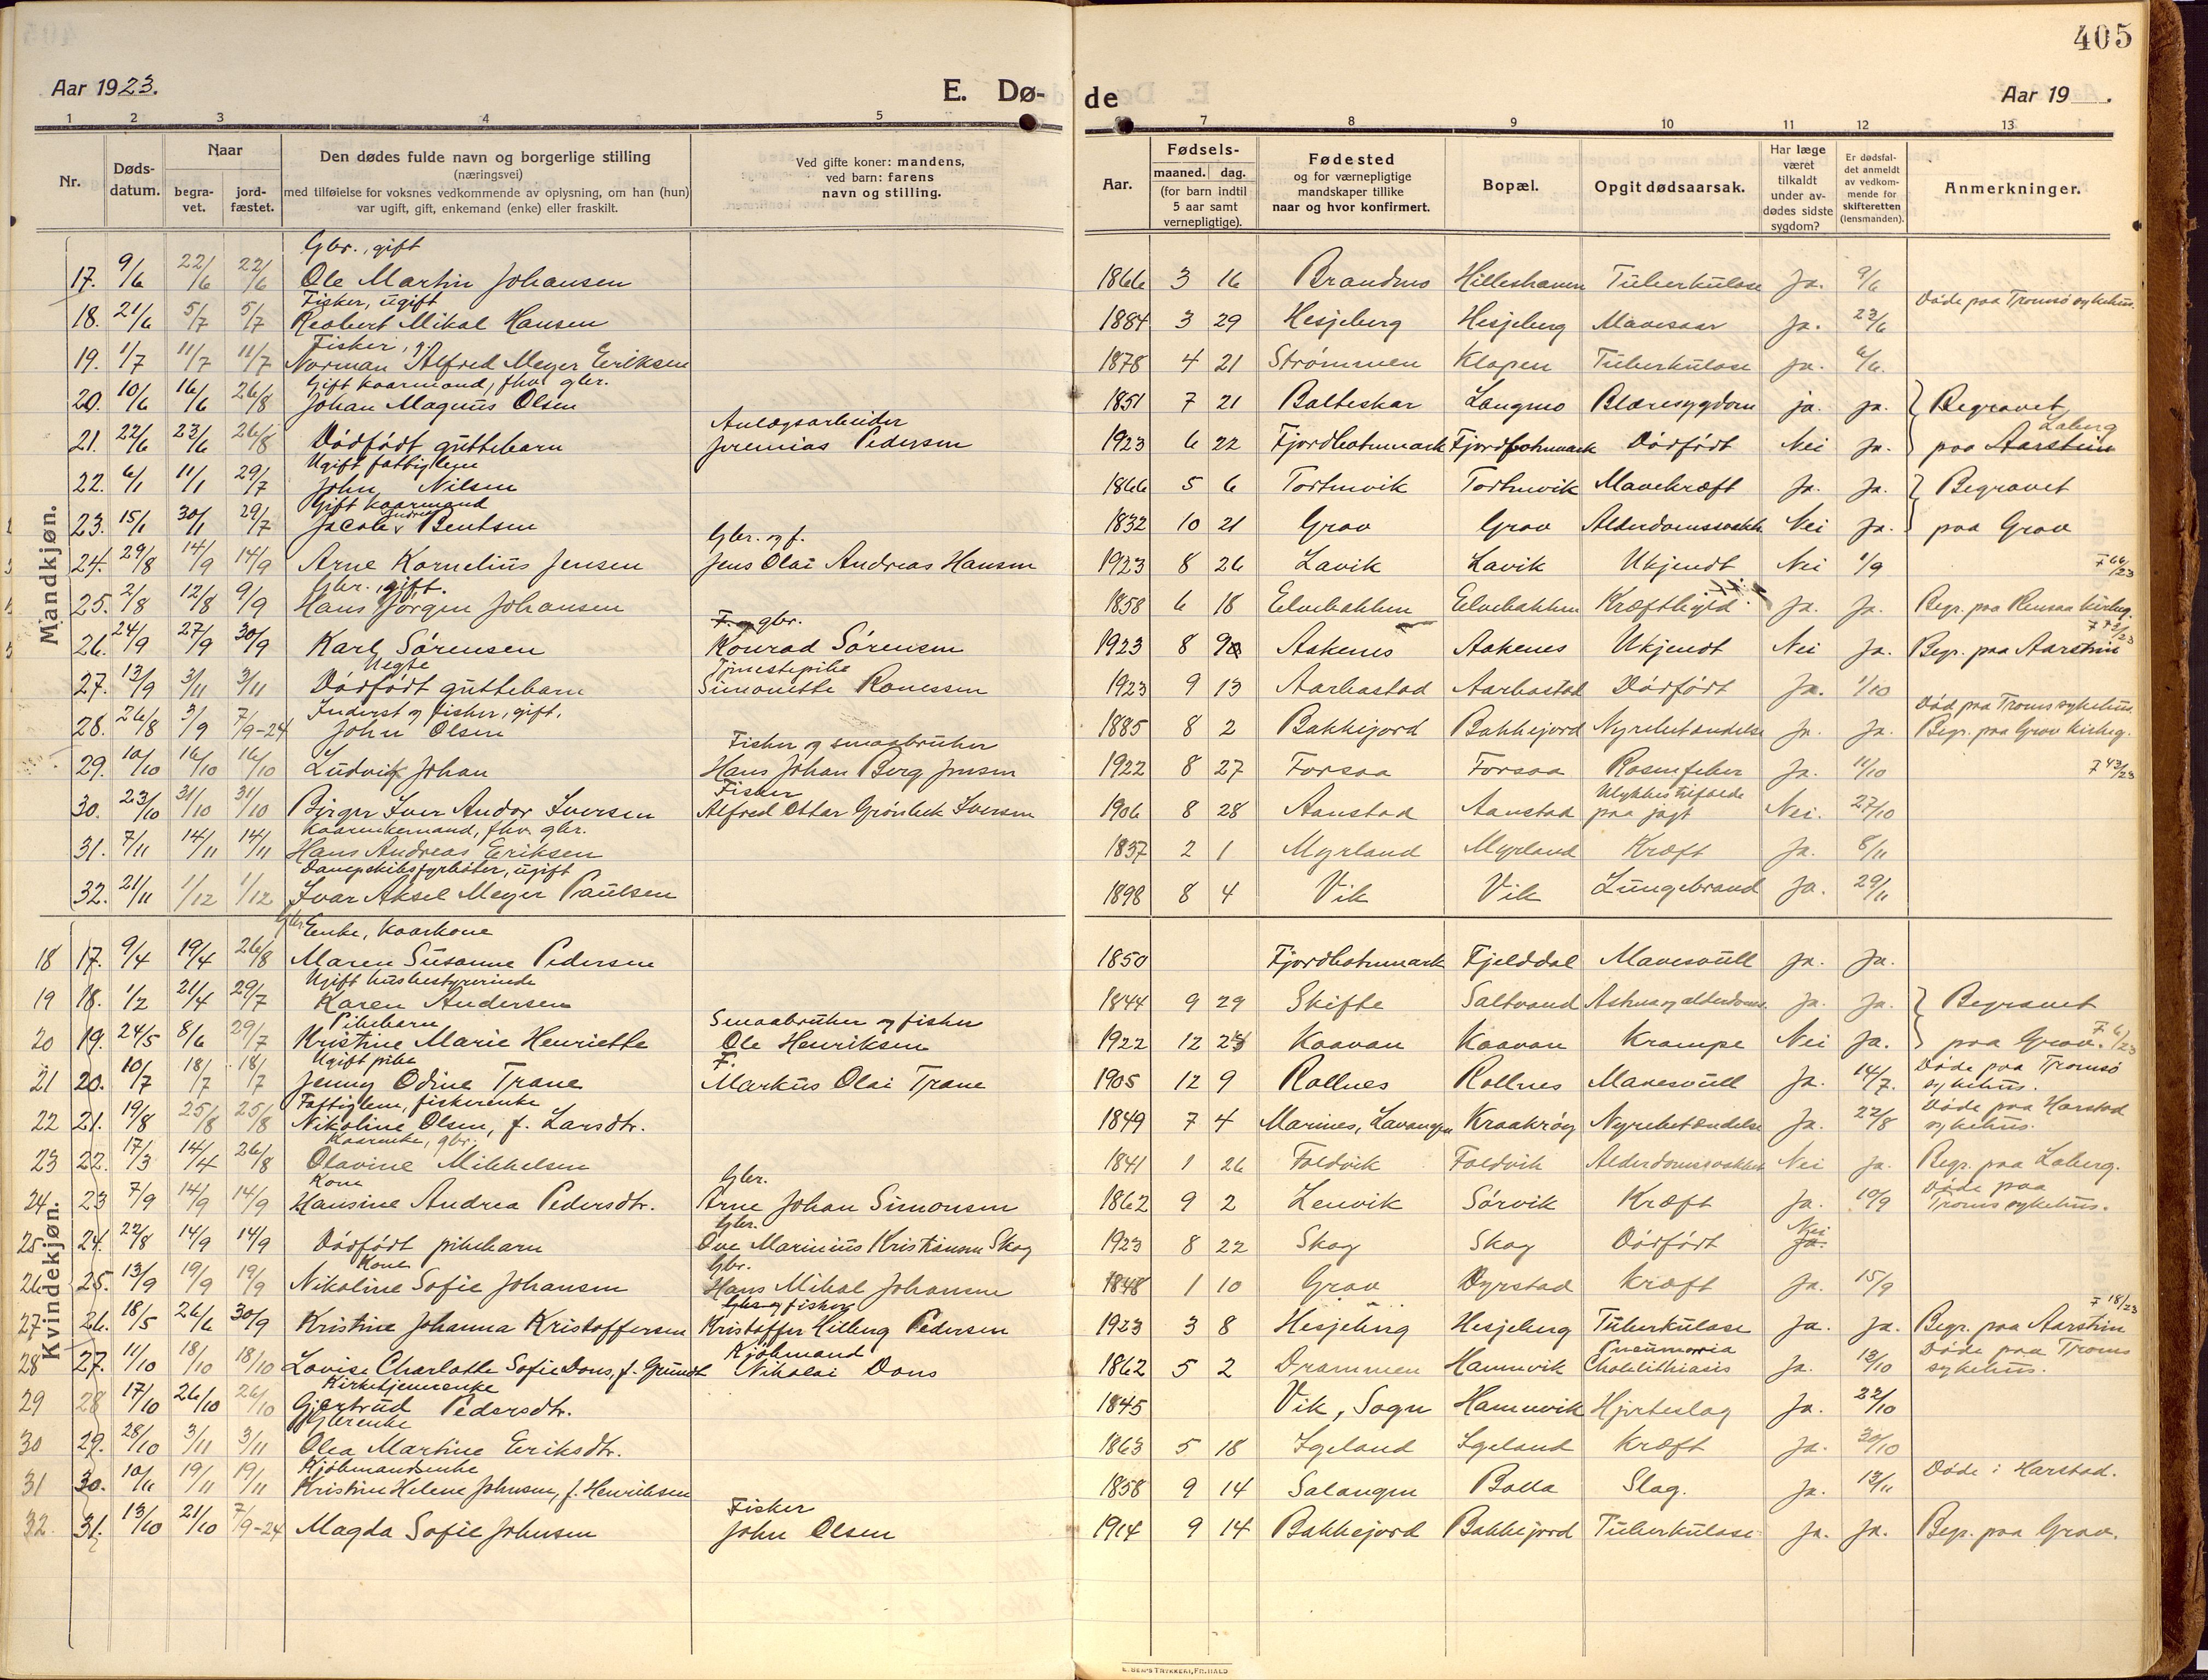 405
Aar 1923.
E. Dø-
de
Aar 19 .
1 2 3 4 5 7 8 9 10 11 12 13
Nr.
Døds-
datum.
Naar
begra-
vet.
jord-
fæstet.
Den dødes fulde navn og borgerlige stilling
(næringsvei)
med tilføielse for voksnes vedkommende av oplysning, om han (hun)
var ugift, gift, enkemand (enke) eller fraskilt.
Ved gifte koner: mandens,
ved barn: farens
navn og stilling.
Aar.
Fødsels-
maaned. dag.
(for barn indtil
5 aar samt
vernepligtige).
Fødested
og for værnepligtige
mandskaper tillike
naar og hvor konfirmert.
Bopæl.
Opgit dødsaarsak.
Har læge
været
tilkaldt
under av-
dødes sidste
sygdom?
Er dødsfal-
det anmeldt
av vedkom-
mende for
skifteretten
(lensmanden).
Anmerkninger.
Mandkjøn.
Gbr., gift
17. 9/6 22/6 22/6 Ole Martin Johansen 1866 3 16 Brandmo Hilleshamn Tuberkulose Ja. 9/6
Fisker, ugift Døde paa Tromsø sykehus.
18. 21/6 5/7 5/7 Reobert Mikal Hansen 1884 3 29 Hesjeberg Hesjeberg Mavesaar Ja. 23/6
Fisker, g.
19. 1/7 11/7 11/7 Norman Alfred Meyer Eriksen 1878 4 21 Strømmen Klapen Tuberkulose Ja. 6/6.
Gift kaarmand, fhv. gbr.
20. 10/6 16/6 26/8 Johan Magnus Olsen 1851 7 21 Balteskar Langmo Blæresygdom ja. ja. Begravet
Anlægsarbeider Laberg
21. 22/6 23/6 26/8 Dødfødt guttebarn Jeremias Pedersen 1923 6 22 Fjordbotnmark Fjordbotnmark Dødfødt Nei Ja. paa Aarstein
Ugift fattiglem
22. 6/1 11/1 29/7 John Nilsen 1866 5 6 Tortenvik Tortenvik Mavekræft Ja. Ja. Begravet
Gift kaarmand
23. 15/1 30/1 29/7 Jacob Andreas Bentsen 1832 10 21 Grov Grov Alderdomssvakh. Nei Ja. paa Grov
Gbr. og f.
24. 29/8 14/9 14/9 Arne Kornelius Jensen Jens Olai Andreas Hansen 1923 8 26 Lavik Lavik Ukjendt Nei 1/9 F 64/23
Gbr., gift.
25. 2/8 12/8 9/9 Hans Jørgen Johansen 1858 6 18 Elvebakken Elvebakken Kræftbyld Ja. Ja. Begr. paa Rensaa kirkeg.
F. og gbr. F 72/23
26. 24/9 27/9 30/9 Karl Sørensen Konrad Sørensen 1923 8 9 Aakenes Aakenes Ukjendt Nei Ja. Begr. paa Aarstein
Uegte Tjenestepike
27. 13/9 3/11 3/11 Dødfødt guttebarn Simonette Ronessen 1923 9 13 Aarbostad Aarbostad Dødfødt Ja. 1/10
Inderst og fisker, gift. Død paa Troms sykehus.
28. 26/8 3/9 7/9-24 John Olsen 1885 8 2 Bakkejord Bakkejord Nyrebetændelse Ja. Ja. Begr. paa Grov kirkeg.
Fisker og smaabruker
29. 10/10 16/10 16/10 Ludvik Johan Hans Johan Berg Jensen 1922 8 27 Forsaa Forsaa Rosenfeber Ja. 11/10 F 43/23
Fisker Ulykkestilfælde
30. 23/10 31/10 31/10 Birger Iver Andor Iversen Alfred Ottar Grønbek Iversen 1906 8 28 Aanstad Aanstad paa jagt Nei. 27/10
Kaarenkemand, fhv. gbr.
31. 7/11 14/11 14/11 Hans Andreas Eriksen 1837 2 1 Myrland Myrland Kræft Ja. 8/11
Dampskibsfyrbøter, ugift
32. 21/11 1/12 1/12 Ivar Aksel Meyer Paulsen 1898 8 4 Vik Vik Lungebrand Ja. 29/11
Kvindekjøn.
Gbr. Enke, Kaarkone
18 17. 9/4 19/4 26/8 Maren Susanne Pedersen 1850 Fjordbotnmark Fjelddal Mavesvull Ja. Ja.
Ugift husbestyrerinde
19 18. 1/2 21/4 29/7 Karen Andersen 1844 9 29 Skifte Saltvand Astma og alderdoms. Ja. Ja. Begravet
Pikebarn Smaabruker og fisker
20 19. 24/5 8/6 29/7 Kristine Marie Henriette Ole Henriksen 1922 12 23 Kaavan Kaavan Krampe Nei Ja. paa Grov. F 6/23
Ugift pike F. Døde paa Tromsø
21 20. 10/7 18/7 18/7 Jenny Odine Trane Markus Olai Trane 1905 12 9 Rollnes Rollnes Mavesvull Ja. 14/7. sykehus.
Fattiglem, fiskerenke Døde paa Harstad
22 21. 19/8 25/8 25/8 Nikoline Olsen, f. Larsdtr. 1849 7 4 Marines, Lavangen Kraakrøy Nyrebetændelse Ja. 22/8 sykehus.
Kaarenke, gbr.
23 22. 17/3 14/4 26/8 Olavine Mikkelsen 1841 1 26 Foldvik Foldvik Alderdomssvakhet Nei Ja. Begr. paa Laberg.
Kone Gbr. Døde paa
24 23 7/9 14/9 14/9 Hansine Andrea Pedersdtr. Arne Johan Simonsen 1862 9 2 Lenvik Sørvik Kræft Ja. 10/9 Troms sykehus.
Gbr. Nei
25. 24. 22/8 14/9 14/9 Dødfødt pikebarn Ove Marinius Kristiansen Skog 1923 8 22 Skog Skog Dødfødt Ja.
Kone Gbr.
26 25. 13/9 19/9 19/9 Nikoline Sofie Johansen Hans Mikal Johansen 1848 1 10 Grov Dyrstad Kræft Ja. 15/9
Gbr. og fisker F 18/23
27 26. 18/5 26/6 30/9 Kristine Johanna Kristoffersen Kristoffer Hilberg Pedersen 1923 3 8 Hesjeberg Hesjeberg Tuberkulose Ja. Ja. Begr. paa Aarstein
Kjøbmand Pneumonia Døde paa Troms
28 27. 11/10 18/10 18/10 Lovise Charlotte Sofie Dons, f. Grundt Nikolai Dons 1862 5 2 Drammen Hamnvik Cholelithiasis Ja. 13/10 sykehus.
Kirketjenerenke
29 28 17/10 26/10 26/10 Gjertrud Pedersdtr. 1845 Vik, Sogn Hamnvik Hjerteslag Ja. 22/10
Gbrenke
30 29. 28/10 3/11 3/11 Olea Martine Eriksdtr. 1863 5 18 Igeland Igeland Kræft Ja. 30/10
Kjøbmandsenke Døde i Harstad.
31 30. 10/11 19/11 19/11 Kristine Helene Johnsen, f. Henriksen 1858 9 14 Salangen Bolla Slag. Ja. 13/11
Fisker
32. 31. 13/10 21/10 7/9-24 Magda Sofie Johnsen John Olsen 1914 9 14 Bakkejord Bakkejord Tuberkulose Ja. Ja. Begr. paa Grov.